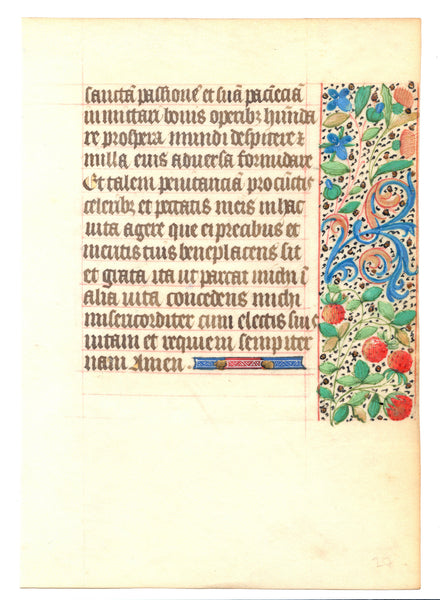 sanctā passionē et suā paciēciā
īmitari bonis operibꝫ habūda
re prospera mundi despicere ⁊
nulla eius adversa formidare
Et talem penitanciam pro cūctis
sceleribꝫ et peccatis meis in hac
vita agere que ei precibus et
meritis eius beneplacens sit
et grata ita ut parcat michi ī
alia vita concedens michi
misericorditer cum electis suis
vitam et requiem sempiter
nam Amen
27